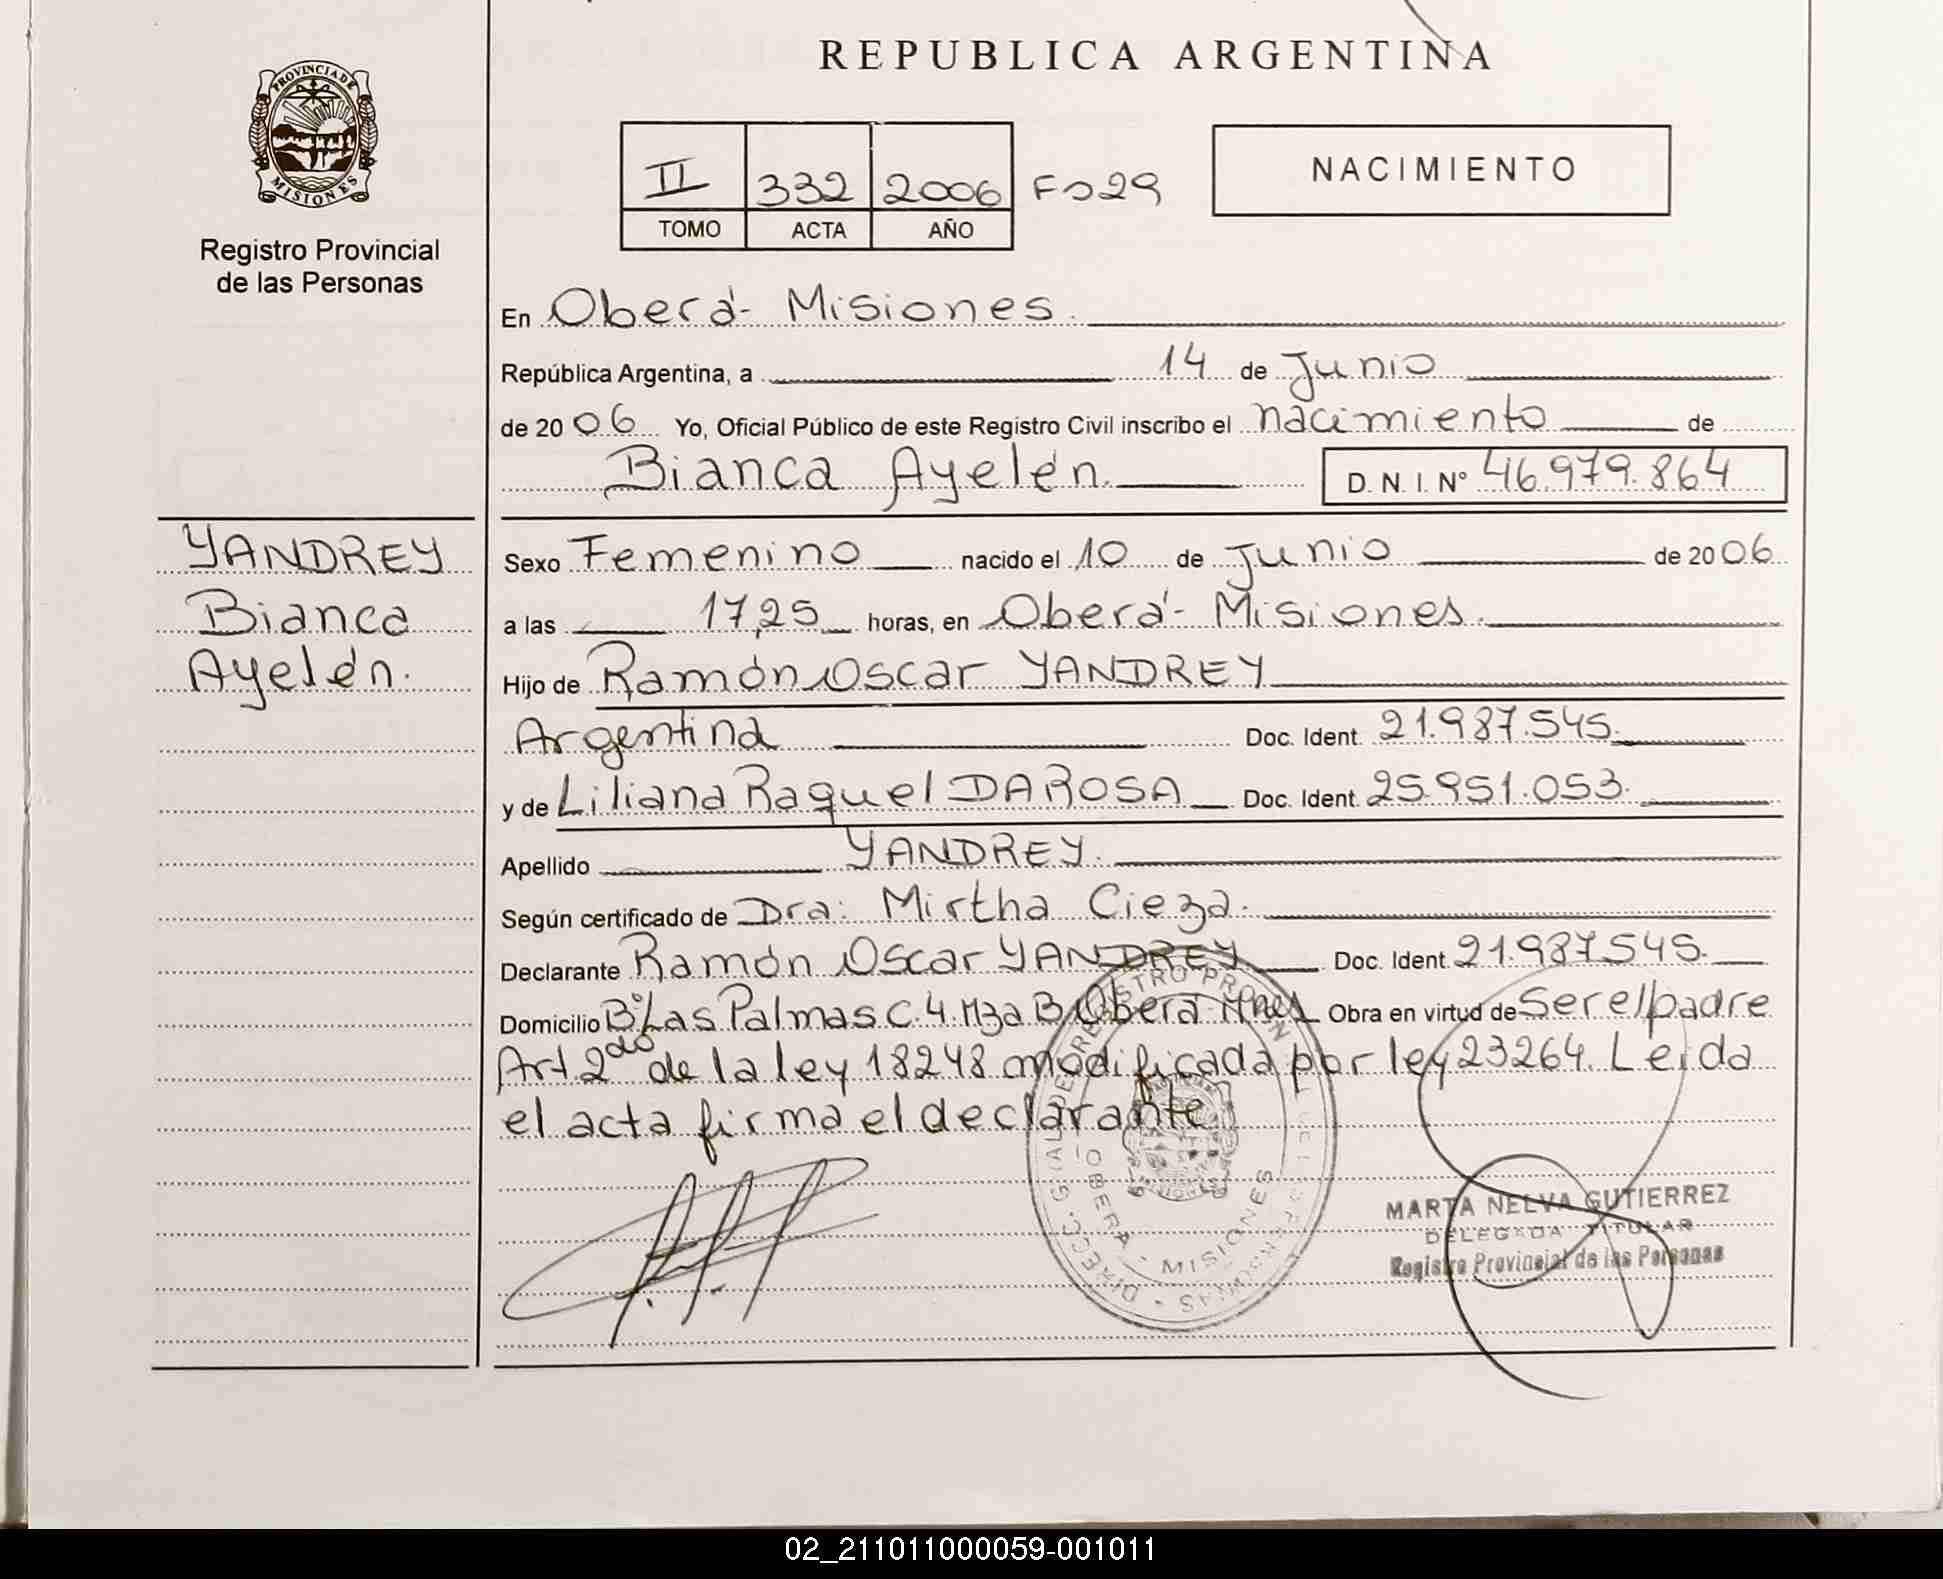 REPUBLICA ARGENTINA
PROVINCIA DE
MISIONES
Registro Provincial
de las Personas
II 332 2006 Fo29
TOMO ACTA AÑO
NACIMIENTO
En Oberá- Misiones.
República Argentina, a 14 de Junio
de 2006 Yo, Oficial Público de este Registro Civil inscribo el nacimiento de
Bianca Ayelén. D. N. I. Nº 46.979.864
YANDREY
Bianca
Ayelén.
Sexo Femenino nacido el 10 de Junio de 2006
a las 17,25 horas, en Oberá- Misiones.
Hijo de Ramón Oscar YANDREY
Argentina Doc. Ident. 21.987.545.
y de Liliana Raquel DAROSA Doc. Ident. 25.951.053.
Apellido YANDREY.
Según certificado de Dra: Mirtha Cieza.
Declarante Ramón Oscar YANDREY Doc. Ident. 21.987.545.
Domicilio Bº Las Palmas C. 4 Mza B Oberá Mnes Obra en virtud de Ser el padre
Art 2do de la ley 18248 modificada por ley 23264. Leida
el acta firma el declarante
OBERA - MISIONES
MARTA NELVA GUTIERREZ
DELEGADA TITULAR
Registro Provincial de las Personas
02_211011000059-001011